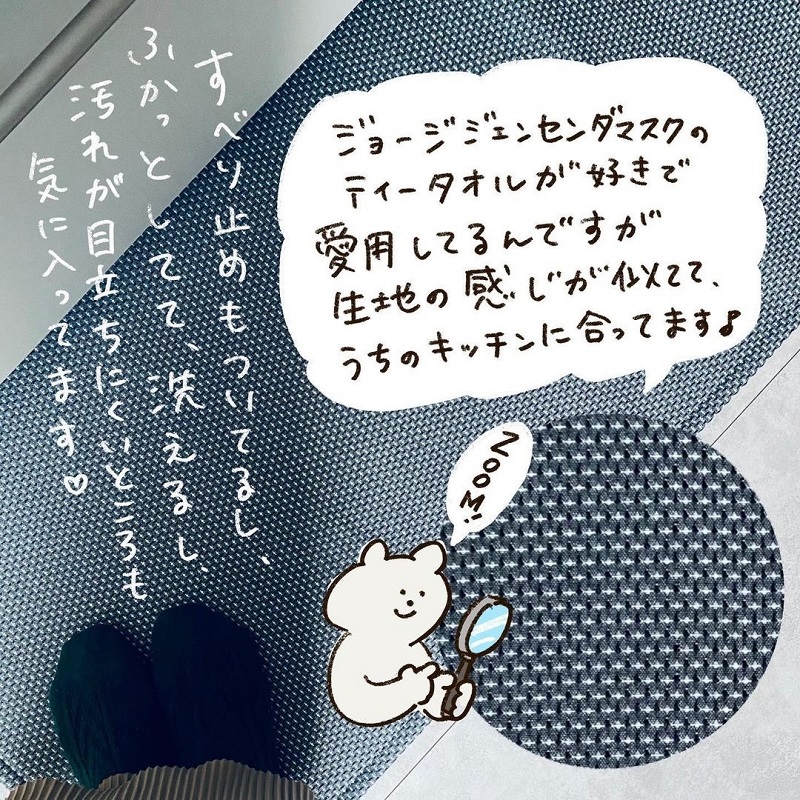 すべり止めもついてるし、
ふかっとしてて、洗えるし、
汚れが目立ちにくいところも
気に入ってます♡
ジョージジェンセンダマスクの
ティータオルが好きで
愛用してるんですが
生地の感じが似てて、
うちのキッチンに合ってます♪
ZOOM!!